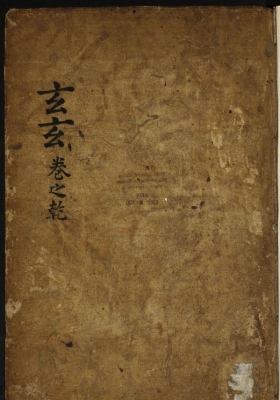 玄玄卷之乾